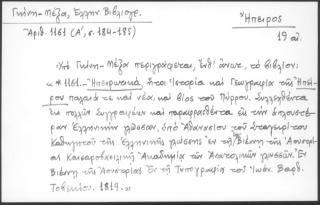 Γκίνη-Μέξα, Ἑλλην. Βιβλιογρ.
Ἤπειρος
Ἀριθ. 1161 (Α', σ. 184-185)
19 αἰ.
Ὑπὸ Γκίνη-Μέξα περιγράφεται, ἔνθ' ἀνωτ., τὸ βιβλίον:
«*1161.- Ἠπειρωτικά, ἤτοι Ἱστορία καὶ Γεωγραφία τῆς Ἠπεί-
ρου παλαιά τε καὶ νέα, καὶ βίος τοῦ Πύρρου. Συλλεχθέντα
ἐκ πολλῶν Συγγραφέων καὶ παραφρασθέντα εἰς τὴν ἁπλουστέ-
ραν Ἑλληνικὴν γλῶσσαν, ὑπὸ Ἀθανασίου τοῦ Σταγειρίτου
Καθηγητοῦ τῆς Ἑλληνικῆς γλώσσης ἐν τῇ Βιέννῃ τῆς Αουστρί-
ας Καισαροβασιλικῇ Ἀκαδημίᾳ τῶν Ἀνατολικῶν γλωσσῶν. Ἐν
Βιέννῃ τῆς Αουστρίας Ἐν τῇ Τυπογραφίᾳ τοῦ Ἰωάν. Βαρθ.
Τσβεκίου. 1819.»